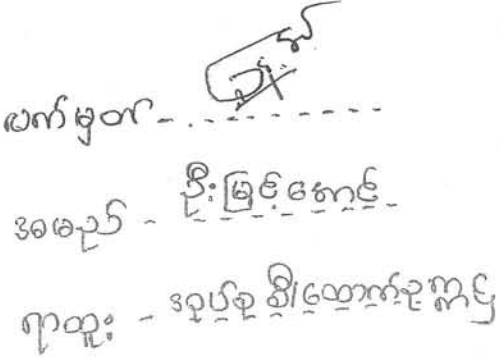 လက်မှတ် - - - - - - - - - -
အမည် - ဦးမြင့်အောင်
ရာထူး - အုပ်စု စီ/ထောက်ဥက္ကဋ္ဌ